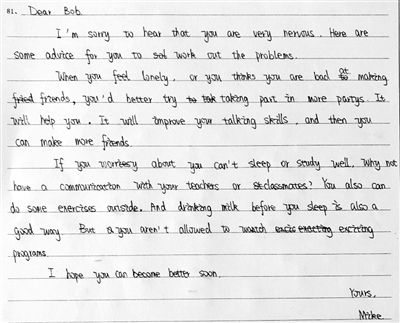 81. Dear Bob
I'm sorry to hear that you are very nervous. Here are
some advice for you to work out the problems.
When you feel lonely, or you thinks you are bad at making
friends, you'd better try taking part in more partys. It
will help you. It will improve your talking skills, and then you
can make more friends.
If you worry about you can't sleep or study well, why not
have a communication with your teachers or classmates? You also can
do some exercises outside. And drinking milk before you sleep is also a
good way. But you aren't allowed to watch exciting
programs.
I hope you can become better soon.
Yours,
Mike